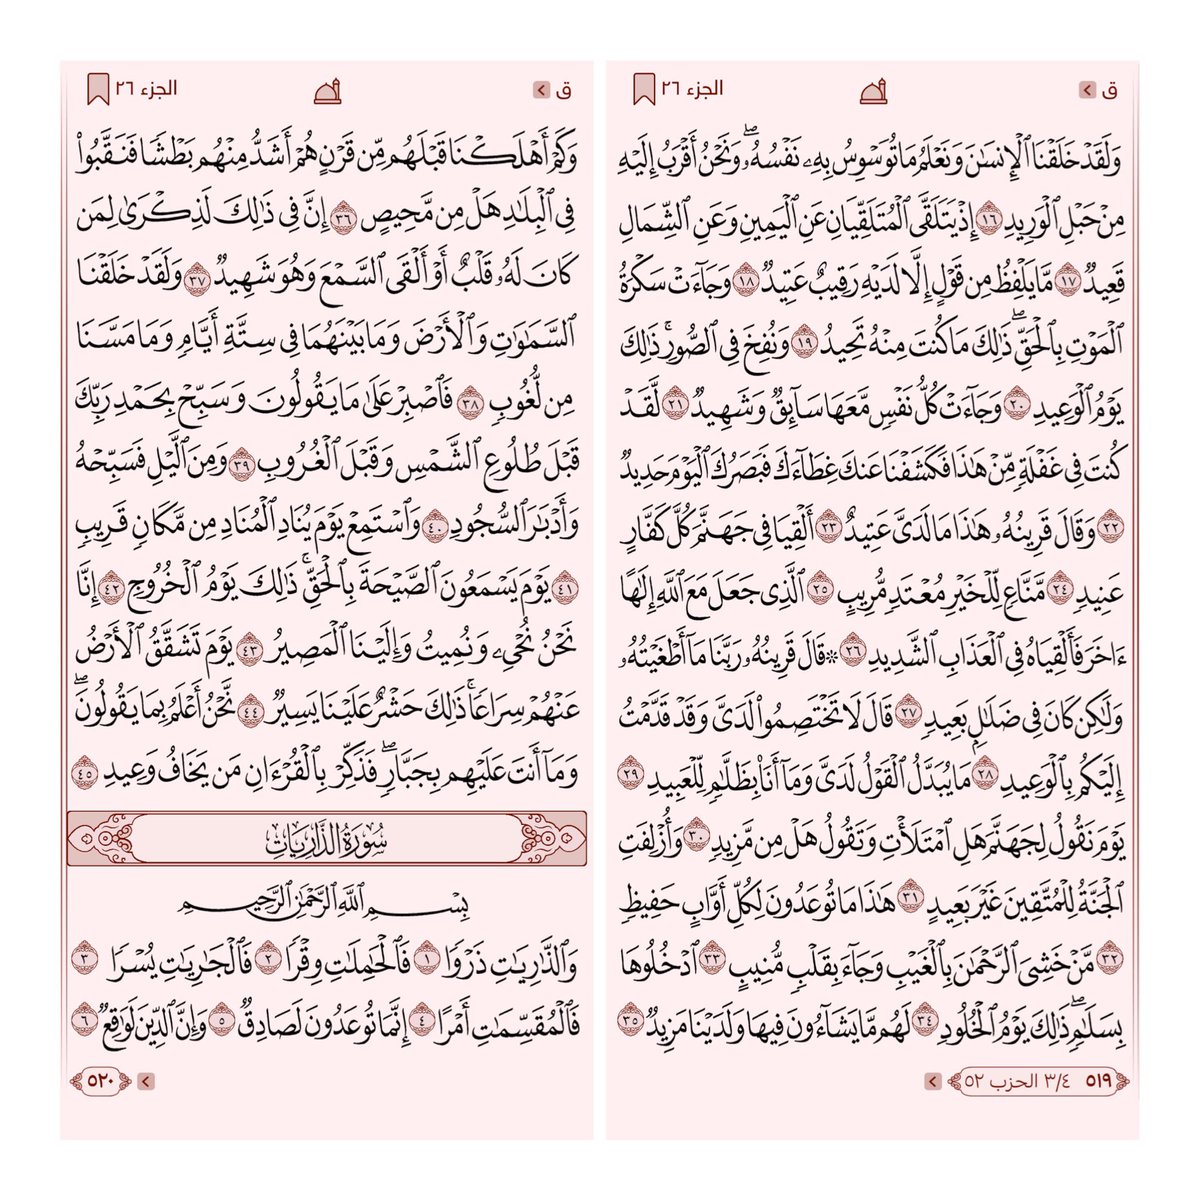 ق
الجزء ٢٦
وَلَقَدْ خَلَقْنَا ٱلْإِنسَٰنَ وَنَعْلَمُ مَا تُوَسْوِسُ بِهِۦ نَفْسُهُۥ ۖ وَنَحْنُ أَقْرَبُ إِلَيْهِ
مِنْ حَبْلِ ٱلْوَرِيدِ ١٦ إِذْ يَتَلَقَّى ٱلْمُتَلَقِّيَانِ عَنِ ٱلْيَمِينِ وَعَنِ ٱلشِّمَالِ
قَعِيدٌ ١٧ مَّا يَلْفِظُ مِن قَوْلٍ إِلَّا لَدَيْهِ رَقِيبٌ عَتِيدٌ ١٨ وَجَآءَتْ سَكْرَةُ
ٱلْمَوْتِ بِٱلْحَقِّ ۖ ذَٰلِكَ مَا كُنتَ مِنْهُ تَحِيدُ ١٩ وَنُفِخَ فِى ٱلصُّورِ ۚ ذَٰلِكَ
يَوْمُ ٱلْوَعِيدِ ٢٠ وَجَآءَتْ كُلُّ نَفْسٍ مَّعَهَا سَآئِقٌ وَشَهِيدٌ ٢١ لَّقَدْ
كُنتَ فِى غَفْلَةٍ مِّنْ هَٰذَا فَكَشَفْنَا عَنكَ غِطَآءَكَ فَبَصَرُكَ ٱلْيَوْمَ حَدِيدٌ
٢٢ وَقَالَ قَرِينُهُۥ هَٰذَا مَا لَدَىَّ عَتِيدٌ ٢٣ أَلْقِيَا فِى جَهَنَّمَ كُلَّ كَفَّارٍ
عَنِيدٍ ٢٤ مَّنَّاعٍ لِّلْخَيْرِ مُعْتَدٍ مُّرِيبٍ ٢٥ ٱلَّذِى جَعَلَ مَعَ ٱللَّهِ إِلَٰهًا
ءَاخَرَ فَأَلْقِيَاهُ فِى ٱلْعَذَابِ ٱلشَّدِيدِ ٢٦ ۞ قَالَ قَرِينُهُۥ رَبَّنَا مَآ أَطْغَيْتُهُۥ
وَلَٰكِن كَانَ فِى ضَلَٰلٍۭ بَعِيدٍ ٢٧ قَالَ لَا تَخْتَصِمُوا۟ لَدَىَّ وَقَدْ قَدَّمْتُ
إِلَيْكُم بِٱلْوَعِيدِ ٢٨ مَا يُبَدَّلُ ٱلْقَوْلُ لَدَىَّ وَمَآ أَنَا۠ بِظَلَّٰمٍ لِّلْعَبِيدِ ٢٩
يَوْمَ نَقُولُ لِجَهَنَّمَ هَلِ ٱمْتَلَأْتِ وَتَقُولُ هَلْ مِن مَّزِيدٍ ٣٠ وَأُزْلِفَتِ
ٱلْجَنَّةُ لِلْمُتَّقِينَ غَيْرَ بَعِيدٍ ٣١ هَٰذَا مَا تُوعَدُونَ لِكُلِّ أَوَّابٍ حَفِيظٍ
٣٢ مَّنْ خَشِىَ ٱلرَّحْمَٰنَ بِٱلْغَيْبِ وَجَآءَ بِقَلْبٍ مُّنِيبٍ ٣٣ ٱدْخُلُوهَا
بِسَلَٰمٍ ۖ ذَٰلِكَ يَوْمُ ٱلْخُلُودِ ٣٤ لَهُم مَّا يَشَآءُونَ فِيهَا وَلَدَيْنَا مَزِيدٌ ٣٥
٥١٩ ٣/٤ الحزب ٥٢
ق
الجزء ٢٦
وَكَمْ أَهْلَكْنَا قَبْلَهُم مِّن قَرْنٍ هُمْ أَشَدُّ مِنْهُم بَطْشًا فَنَقَّبُوا۟
فِى ٱلْبِلَٰدِ هَلْ مِن مَّحِيصٍ ٣٦ إِنَّ فِى ذَٰلِكَ لَذِكْرَىٰ لِمَن
كَانَ لَهُۥ قَلْبٌ أَوْ أَلْقَى ٱلسَّمْعَ وَهُوَ شَهِيدٌ ٣٧ وَلَقَدْ خَلَقْنَا
ٱلسَّمَٰوَٰتِ وَٱلْأَرْضَ وَمَا بَيْنَهُمَا فِى سِتَّةِ أَيَّامٍ وَمَا مَسَّنَا
مِن لُّغُوبٍ ٣٨ فَٱصْبِرْ عَلَىٰ مَا يَقُولُونَ وَسَبِّحْ بِحَمْدِ رَبِّكَ
قَبْلَ طُلُوعِ ٱلشَّمْسِ وَقَبْلَ ٱلْغُرُوبِ ٣٩ وَمِنَ ٱلَّيْلِ فَسَبِّحْهُ
وَأَدْبَٰرَ ٱلسُّجُودِ ٤٠ وَٱسْتَمِعْ يَوْمَ يُنَادِ ٱلْمُنَادِ مِن مَّكَانٍ قَرِيبٍ
٤١ يَوْمَ يَسْمَعُونَ ٱلصَّيْحَةَ بِٱلْحَقِّ ۚ ذَٰلِكَ يَوْمُ ٱلْخُرُوجِ ٤٢ إِنَّا
نَحْنُ نُحْىِۦ وَنُمِيتُ وَإِلَيْنَا ٱلْمَصِيرُ ٤٣ يَوْمَ تَشَقَّقُ ٱلْأَرْضُ
عَنْهُمْ سِرَاعًا ۚ ذَٰلِكَ حَشْرٌ عَلَيْنَا يَسِيرٌ ٤٤ نَّحْنُ أَعْلَمُ بِمَا يَقُولُونَ ۖ
وَمَآ أَنتَ عَلَيْهِم بِجَبَّارٍ ۖ فَذَكِّرْ بِٱلْقُرْءَانِ مَن يَخَافُ وَعِيدِ ٤٥
سُورَةُ الذَّارِيَاتِ
بِسْمِ ٱللَّهِ ٱلرَّحْمَٰنِ ٱلرَّحِيمِ
وَٱلذَّٰرِيَٰتِ ذَرْوًا ١ فَٱلْحَٰمِلَٰتِ وِقْرًا ٢ فَٱلْجَٰرِيَٰتِ يُسْرًا ٣
فَٱلْمُقَسِّمَٰتِ أَمْرًا ٤ إِنَّمَا تُوعَدُونَ لَصَادِقٌ ٥ وَإِنَّ ٱلدِّينَ لَوَٰقِعٌ ٦
٥٢٠